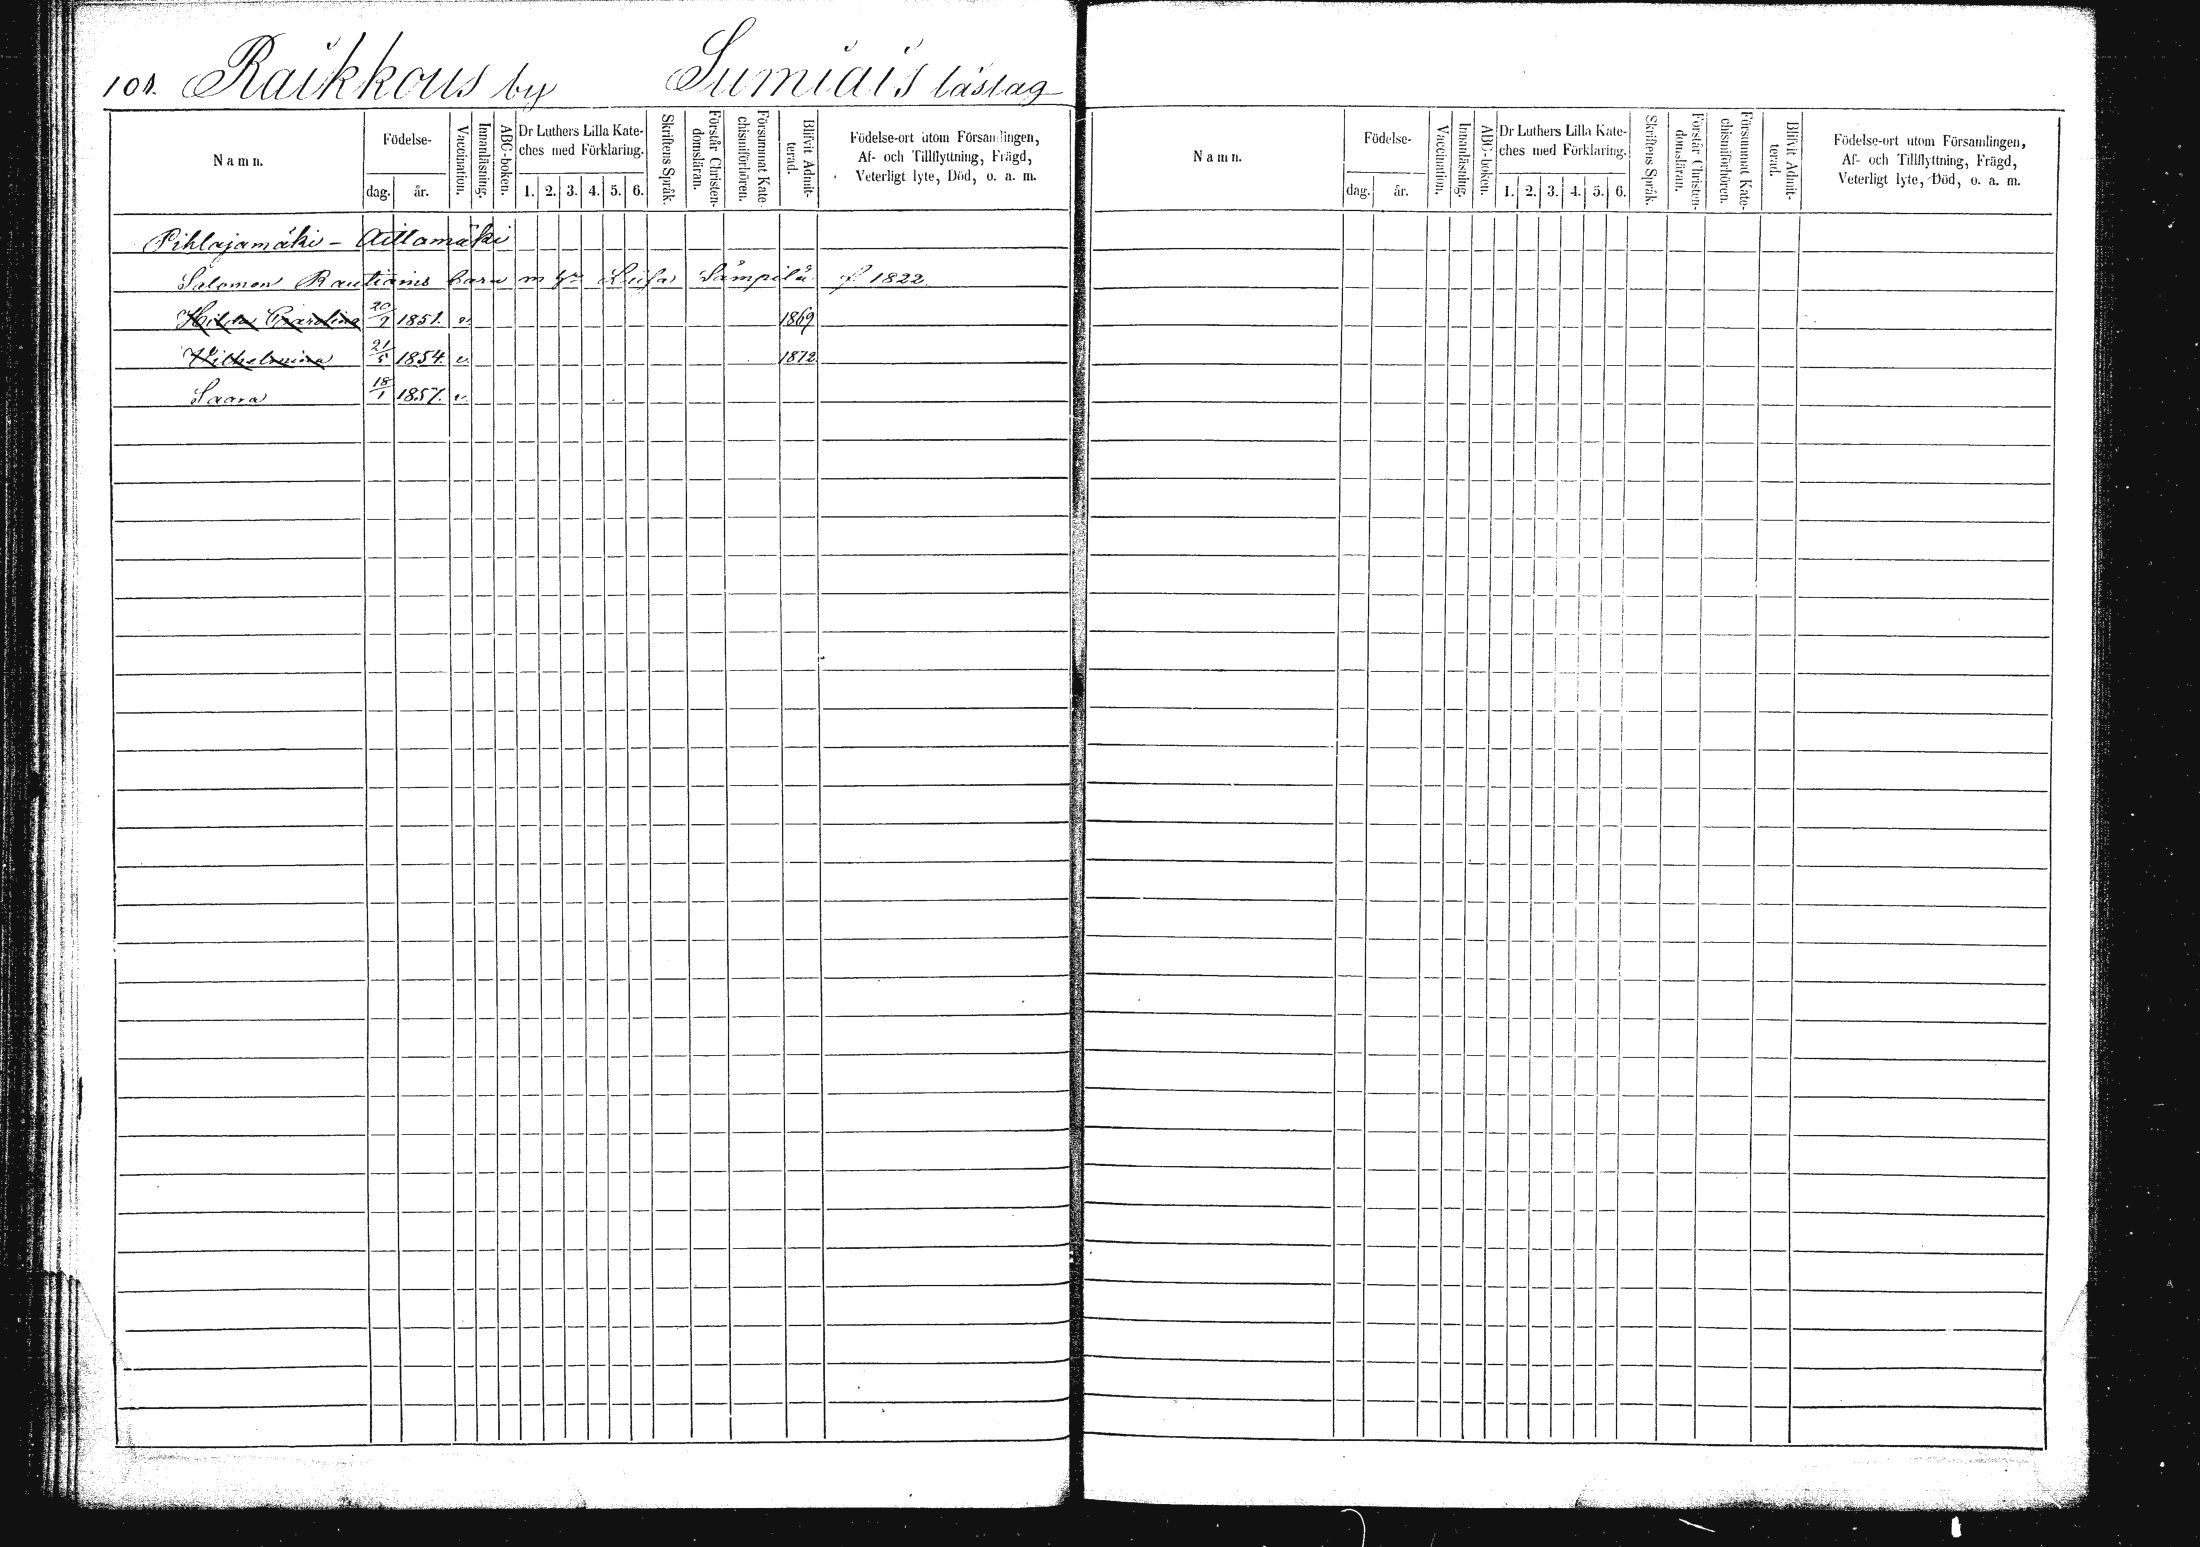 101. Raikkous by Sumiais läslag
Namn.
Födelse-
dag.
år.
Vaccination.
Innanläsning.
ABC-boken.
Dr Luthers Lilla Kate-
ches med Förklaring.
1. 2. 3. 4. 5. 6.
Skriftens Språk.
Förstår Christen-
domsläran.
Försummat Kate-
chismiförhören.
Blifvit Admit-
terad.
Födelse-ort utom Församlingen,
Af- och Tillflyttning, Frägd,
Veterligt lyte, Död, o. a. m.
Pihlajamäki - Aittamäki
Salomon Rautiains barn m Lüsa f. 1822.
Hilda Carolina 20/9 1851. v. 1869
Wilhelmina 21/5 1854. v. 1872.
Saara 18/1 1857. v.
Namn.
Födelse-
dag.
år.
Vaccination.
Innanläsning.
ABC-boken.
Dr Luthers Lilla Kate-
ches med Förklaring.
1. 2. 3. 4. 5. 6.
Skriftens Språk.
Förstår Christen-
domsläran.
Försummat Kate-
chismiförhören.
Blifvit Admit-
terad.
Födelse-ort utom Församlingen,
Af- och Tillflyttning, Frägd,
Veterligt lyte, Död, o. a. m.